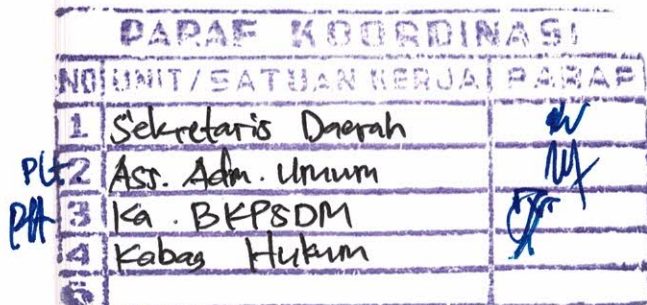 PARAF KOORDINASI
NO UNIT/SATUAN KERJA PARAP
1 Sekretaris Daerah
Plt. 2 Ass. Adm. Umum
Plt 3 Ka. BKPSDM
4 Kabag Hukum
5